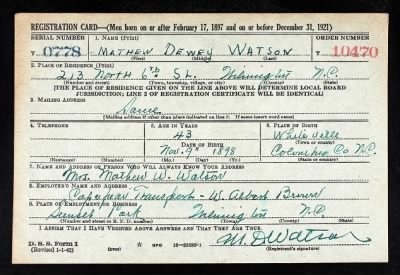 REGISTRATION CARD—(Men born on or after February 17, 1897 and on or before December 31, 1921)
SERIAL NUMBER 1. NAME (Print) ORDER NUMBER
T 0778 MATHEW DEWEY WATSON T 10470
(First) (Middle) (Last)
2. PLACE OF RESIDENCE (Print)
213 North 6th St. Wilmington N.C.
(Number and street) (Town, township, village, or city) (County) (State)
[THE PLACE OF RESIDENCE GIVEN ON THE LINE ABOVE WILL DETERMINE LOCAL BOARD
JURISDICTION; LINE 2 OF REGISTRATION CERTIFICATE WILL BE IDENTICAL]
3. MAILING ADDRESS
Same
[Mailing address if other than place indicated on line 2. If same insert word same]
4. TELEPHONE 5. AGE IN YEARS 6. PLACE OF BIRTH
43 Whiteville
DATE OF BIRTH (Town or county)
Nov. 9th 1898 Co N.C.
(Exchange) (Number) (Mo.) (Day) (Yr.) (State or country)
7. NAME AND ADDRESS OF PERSON WHO WILL ALWAYS KNOW YOUR ADDRESS
Mrs. Mathew W. Watson
8. EMPLOYER'S NAME AND ADDRESS
Cape Fear Transport - W. Albert Brown
9. PLACE OF EMPLOYMENT OR BUSINESS
Sunset Park Wilmington N.C.
(Number and street or R. F. D. number) (Town) (County) (State)
I AFFIRM THAT I HAVE VERIFIED ABOVE ANSWERS AND THAT THEY ARE TRUE.
D. S. S. Form 1
(Revised 1-1-42) (over) GPO M. D Watson
(Registrant's signature)